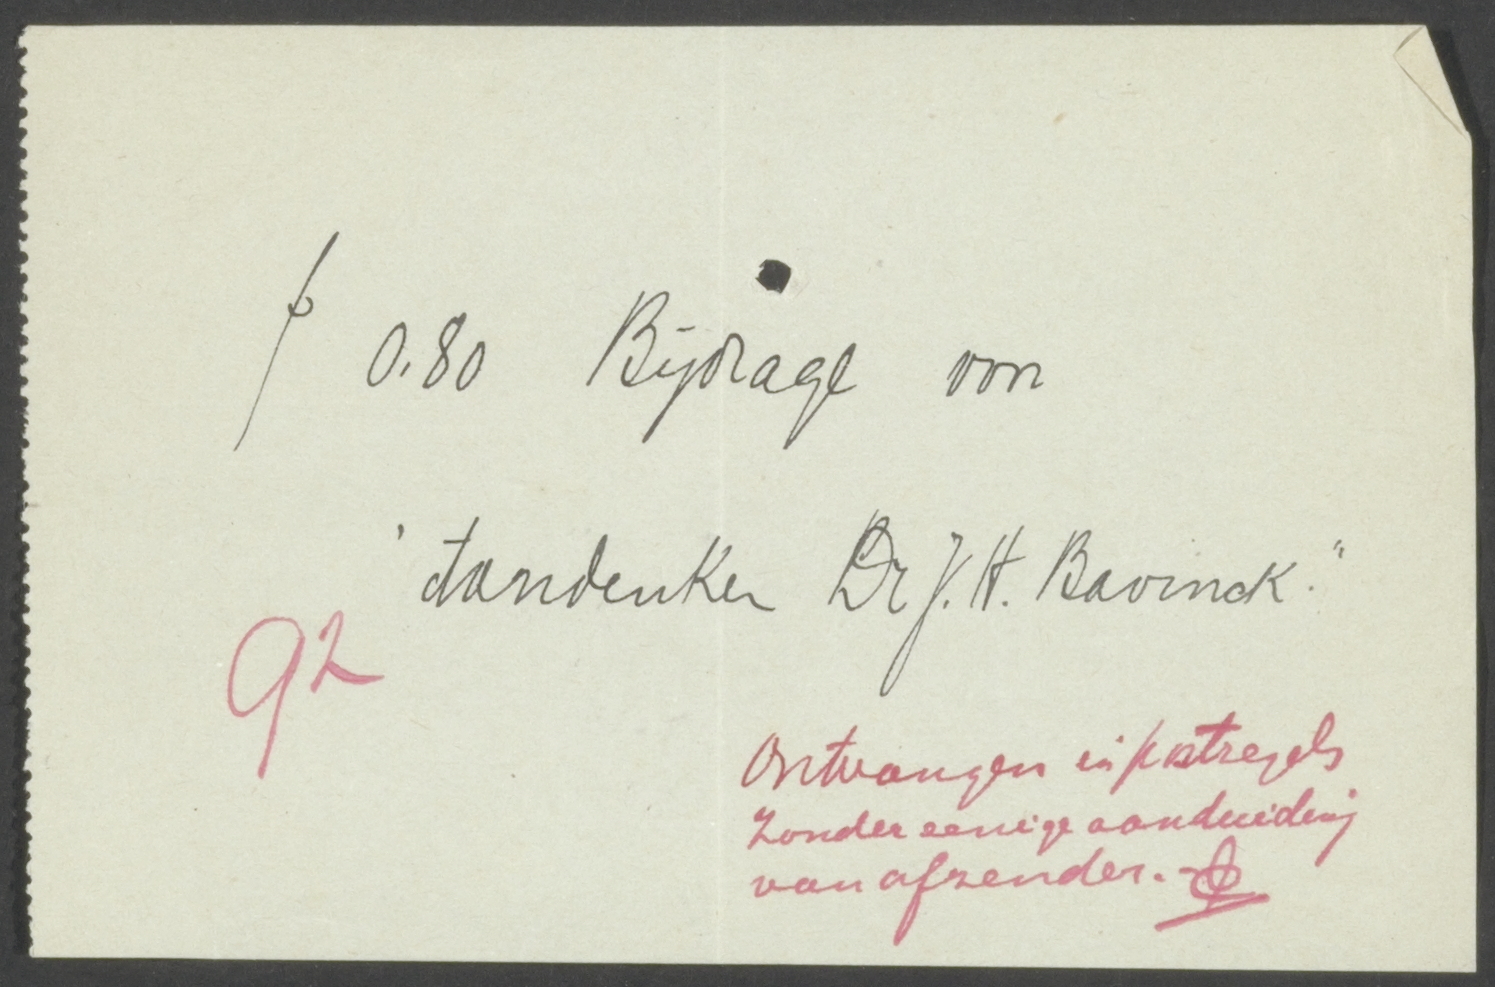 ƒ 0.80 Bijdrage von
'Aandenken Dr J. H. Bavinck."
92
Ontvangen in postzegels
zonder eenige aanduiding
van afzender.-